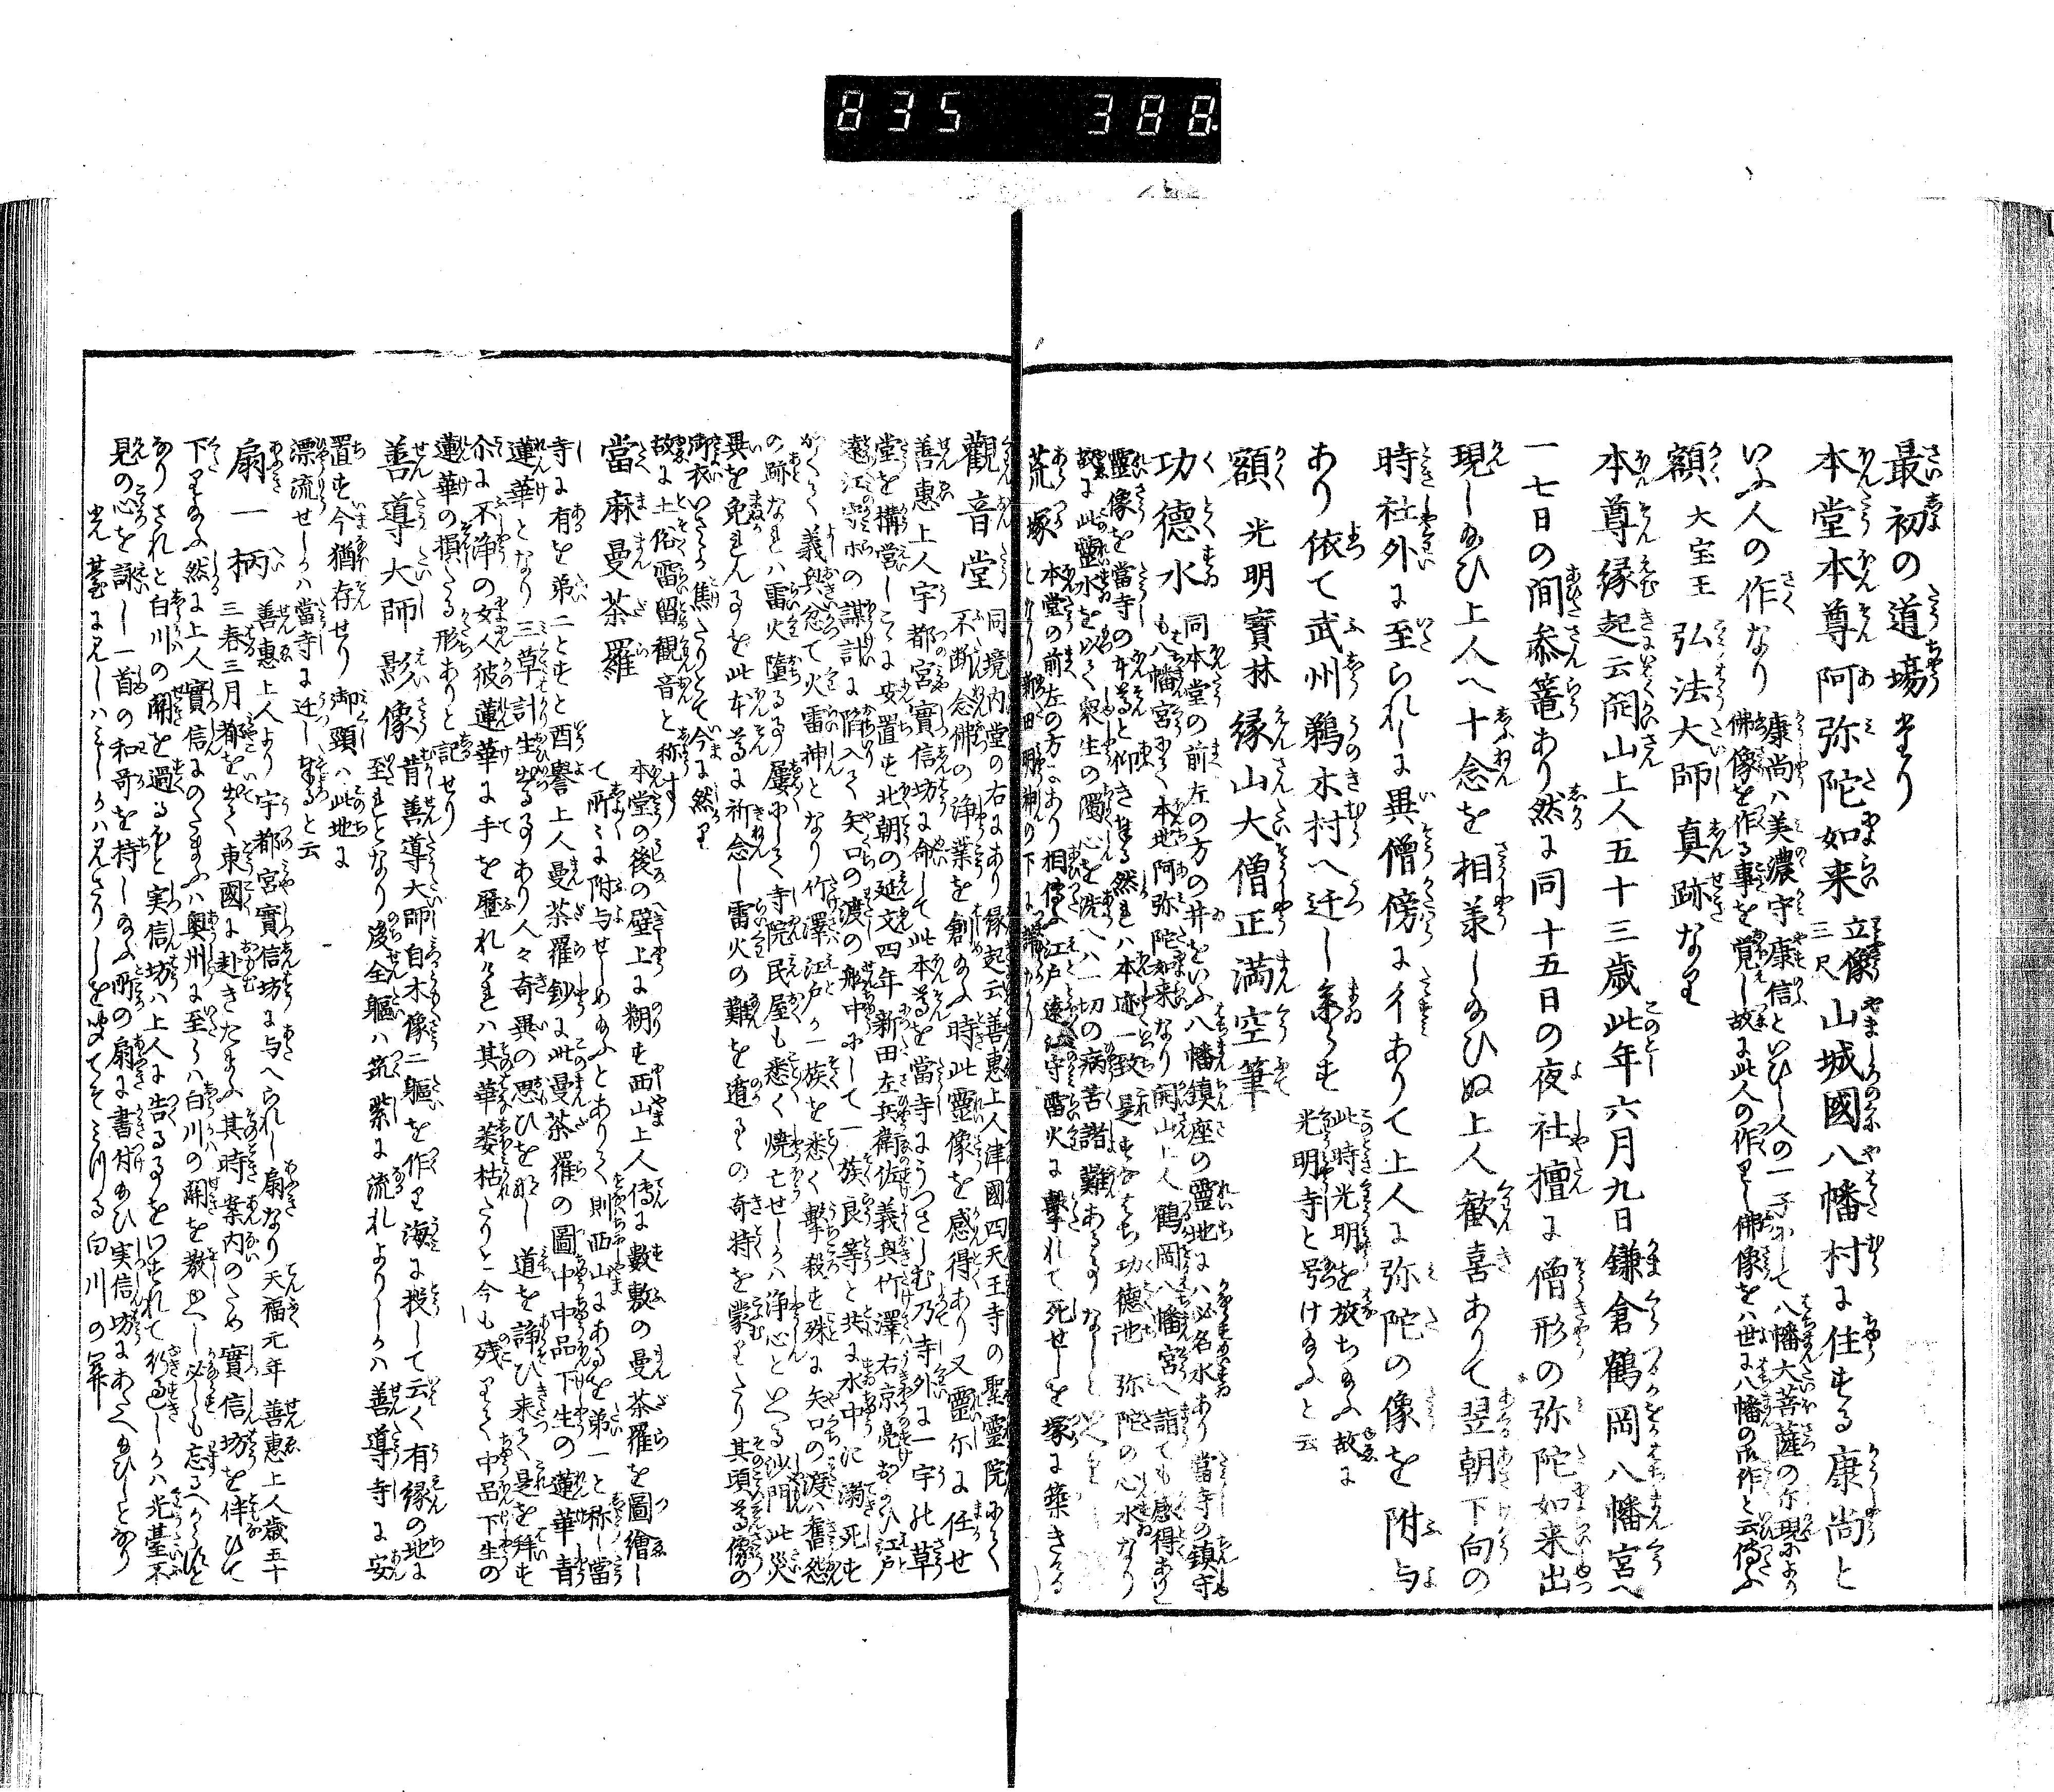 835 388
最初の道場なり
本堂本尊阿弥陀如来 立像三尺 山城國八幡村に住する康尚と
いふ人の作なり 康尚ハ美濃守康信といひし人の一子にして八幡大菩薩の示現により
佛像を作る事を覚し故に此人の作りし佛像をハ世に八幡の御作と云傳ふ
額 大宝王 弘法大師真跡なり
本尊縁起云開山上人五十三歳此年六月九日鎌倉鶴岡八幡宮へ
一七日の間参篭あり然に同十五日の夜社檀に僧形の弥陀如来出
現し給ひ上人へ十念を相兼し給ひぬ上人歓喜ありて翌朝下向の
時社外に至られしに異僧傍に彳ありて上人に弥陀の像を附与
あり依て武州鵜木村へ迁し参らす 此時光明を放ち給ふ故に
光明寺と号け給ふと云
額 光明寶林 縁山大僧正満空筆
功德水 同本堂の前左の方の井をいふ八幡鎮座の霊地にハ必名水あり當寺の鎮守
も八幡宮にて本地阿弥陀如来なり開山上人鶴岡八幡宮へ詣ても感得ありし
霊像を當寺の本尊と仰き奉る然れハ本迹一致是すなハち功德池弥陀の心水なり
故に此霊水を以て衆生の濁心を洗ハハ一切の病苦諸難あるる事なしと
荒塚 本堂の前左の方にあり相傳ふ江戸遠江守雷火に撃れて死せしを塚に築きたる
觀音堂 同境内堂の右にあり縁起云善惠上人津國四天王寺の聖靈院にて
不断念佛の浄業を創給ふ時此霊像を感得あり又霊示に任せ
善惠上人宇都宮實信坊に命して此本尊を當寺にうつさしむ乃寺外に一宇の草
堂を構営しこゝに安置す北朝の延文四年新田左兵衛佐義興竹澤右京亮および江戸
遠江守か謀計に陥入て矢口の渡の船中にして一族良等と共に水中に溺死す
かくて義興忿て火雷神となり竹澤江戸か一族を悉く撃殺す殊に矢口の渡ハ舊怨
の跡なれハ雷火墮る事屡にして寺院民屋も悉く焼亡せしかハ浄心といへる沙門此災
異を免れん事を此本尊に祈念し雷火の難を遁るゝの奇特を蒙りたり其頃尊像の
御衣いさゝか焦たりとて今に然り
故に土俗雷留観音と称す
當麻曼荼羅 本堂の後の壁上に糊す西山上人傳に數敷の曼茶羅を圖繪し
て所々に附与せしめ給ふとありて則西山にあるを第一と称し當
寺に有を弟二とすと酉譽上人曼荼羅鈔に此曼茶羅の圖中中品下生の蓮華青
蓮華となり三草計生出る事あり人々奇異の思ひを那し道を諍ひ来て是を拜す
尒に不浄の女人彼蓮華に手を歴れけれハ其華萎枯たりと今も残りて中品下生の
蓮華の損たる形ありと記せり
善導大師影像 昔善導大師自木像二軀を作り海に投して云く有縁の地に
至れとなり後全軀ハ筑紫に流れよりしかハ善導寺に安
置す今猶存せり御頸ハ此地に
漂流せしかハ當寺に迁し奉ると云
扇一柄 善惠上人より宇都宮實信坊に与へられし扇なり天福元年善惠上人歳五十
三春三月都を出て東國に赴きたまふ其時案内のため實信坊を伴ひて
下り給ふ然に上人實信にのたまふハ奥州に至らハ白川の關を教へし必しも忘るへからすと
ありされと白川の關を過るほと実信坊ハ上人に告る事をわすれて行過しかハ光臺不
見の心を詠し一首の和哥を持し給ふ所の扇に書付給ひ実信坊にあたへ給ひしとなり
光臺に見しハみしかハ見さりしを聞てそみつる白川の関